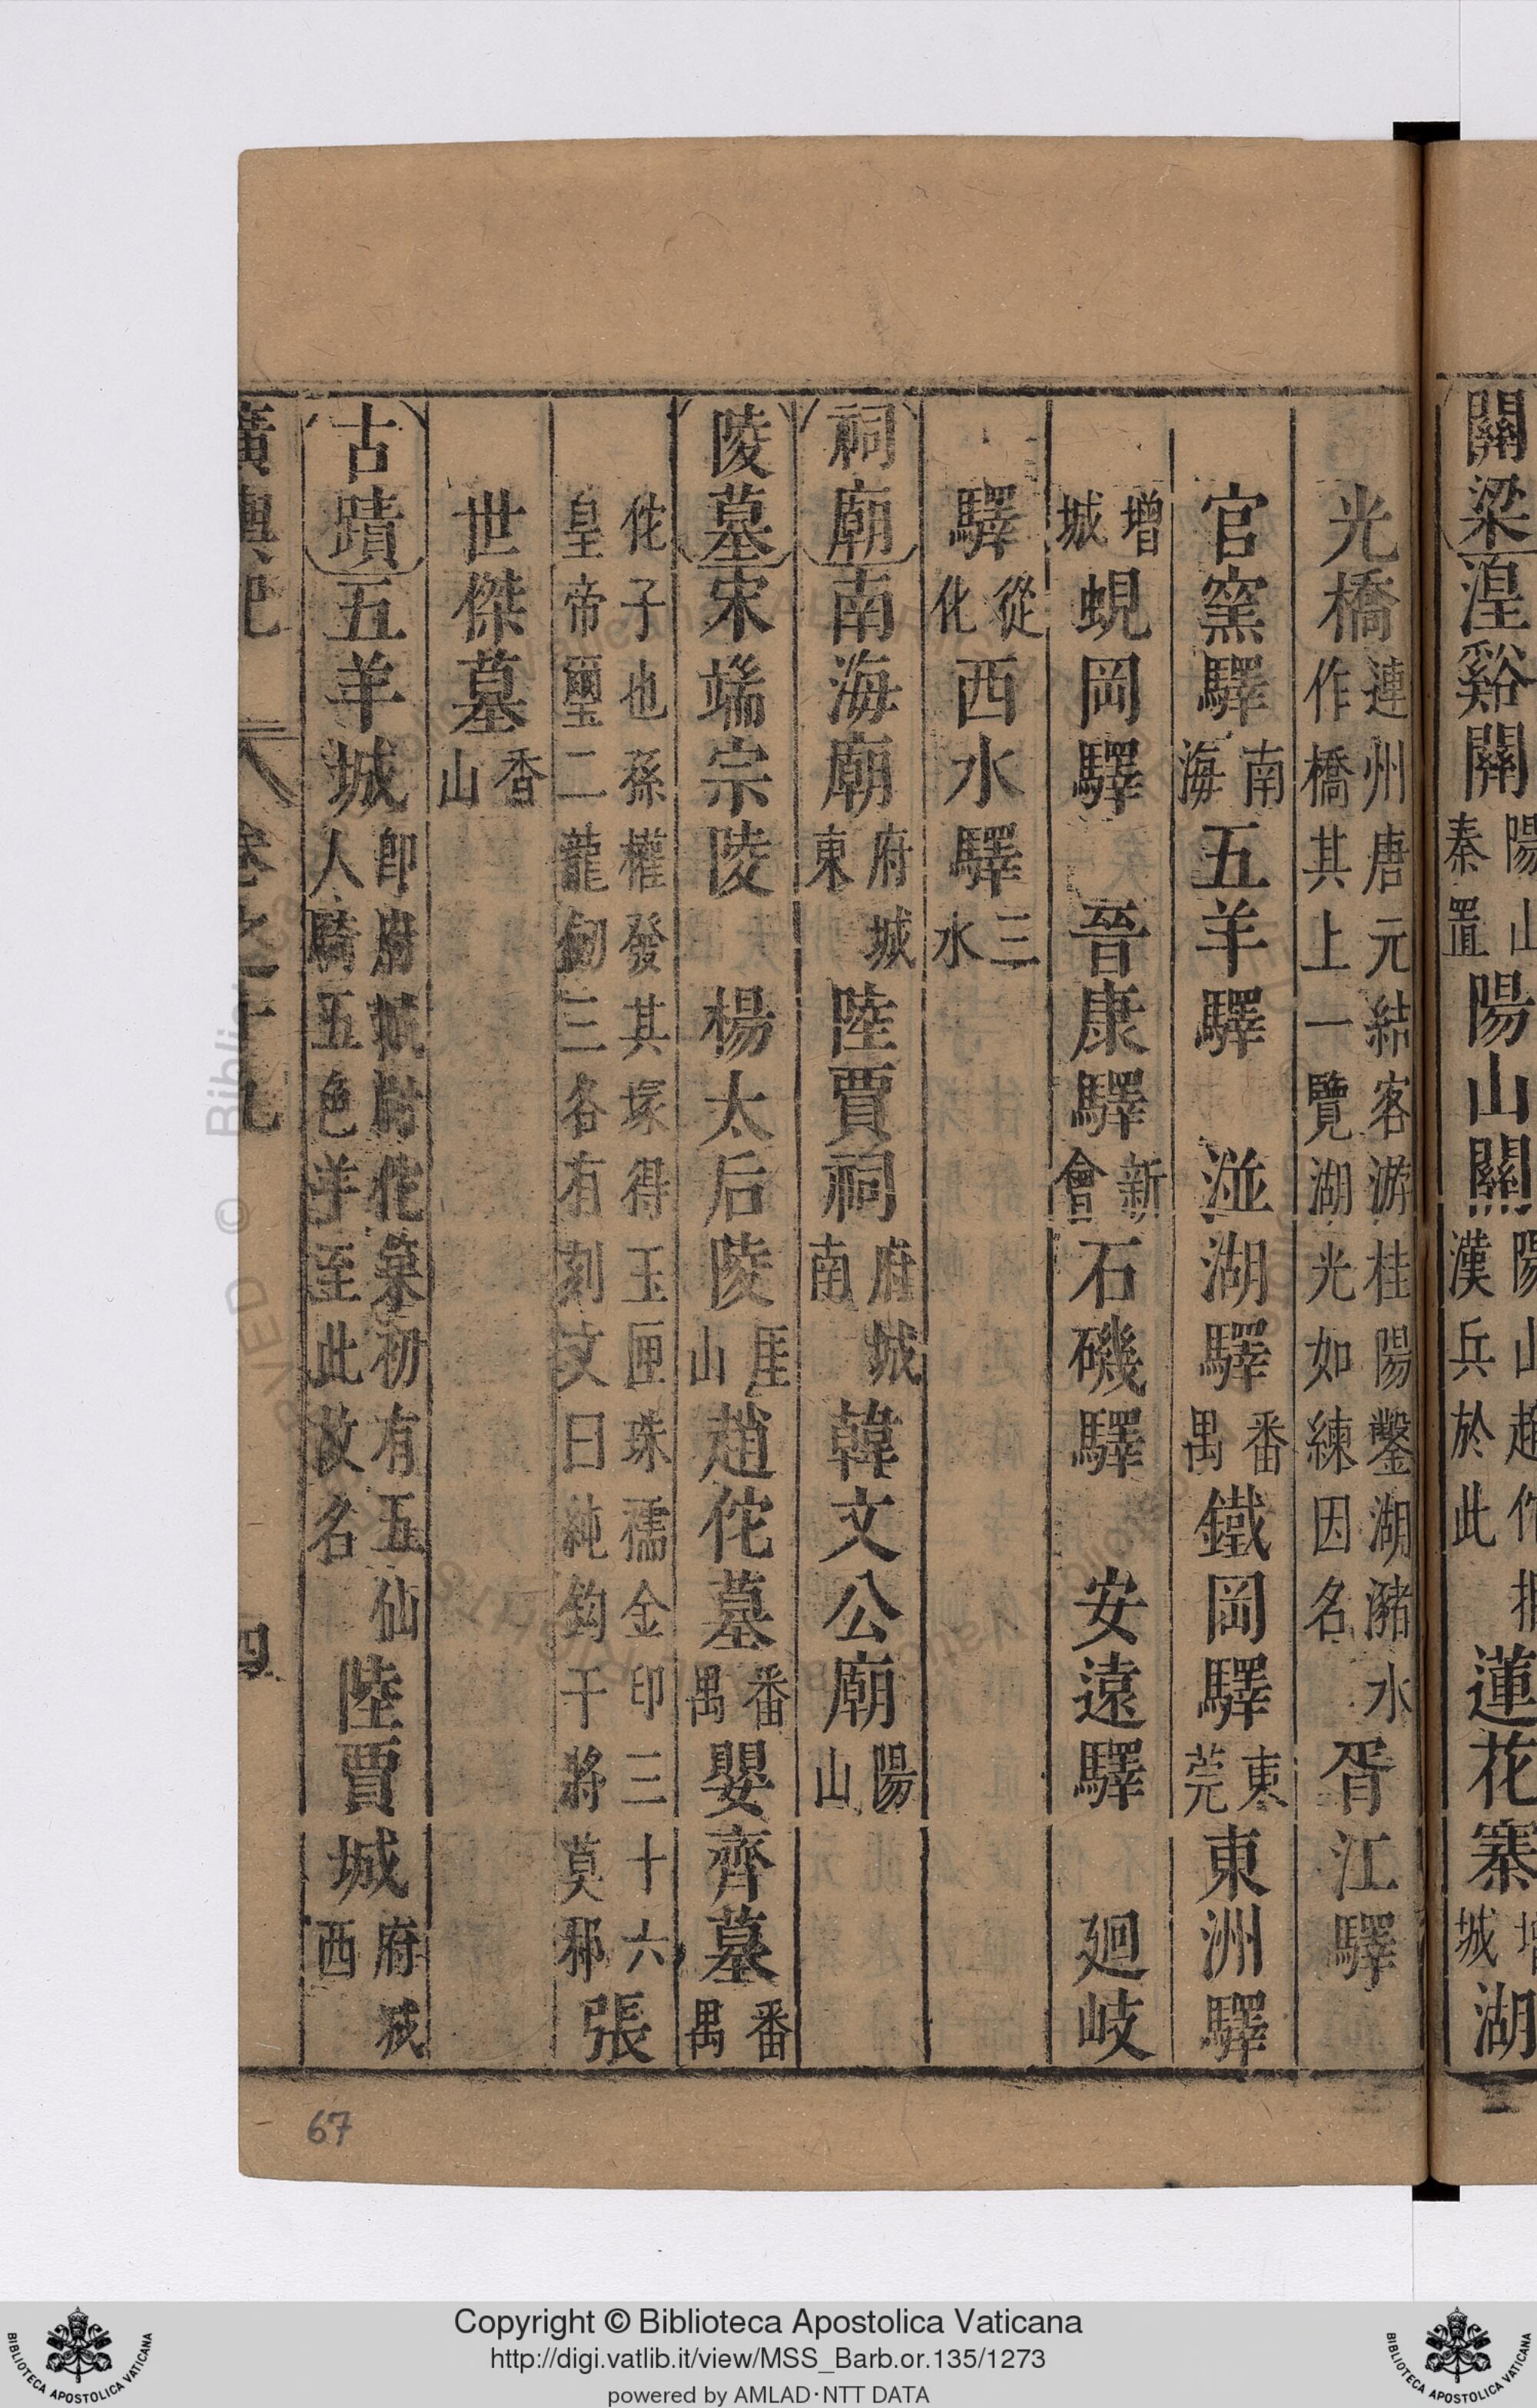 關梁湟谿關陽山秦置陽山關陽山漢兵於此蓮花寨城湖
光橋連州唐元結客游桂陽鑿湖瀦水作橋其上一覽湖光如練因名胥江驛
官窯驛南海五羊驛 湴湖驛番禺鐵岡驛東莞東洲驛
增城蜆岡驛 晉康驛新會石磯驛 安遠驛 廻岐
驛從化西水驛三水
祠廟南海廟府城東陸賈祠府城南韓文公廟陽山
陵墓宋端宗陵 楊太后陵厓山趙佗墓番禺嬰齊墓番禺
佗子也孫權發其塚得玉匣珠襦金印三十六皇帝璽二龍劒三各有刻文曰純鈎干將莫邪張
世傑墓香山
古蹟五羊城即府城尉佗築初有五仙人騎五色羊至此故名陸賈城府城西
廣輿記 卷之十九 四
67
Copyright © Biblioteca Apostolica Vaticana
http://digi.vatlib.it/view/MSS_Barb.or.135/1273
powered by AMLAD·NTT DATA
BIBLIOTECA APOSTOLICA VATICANA
BIBLIOTECA APOSTOLICA VATICANA